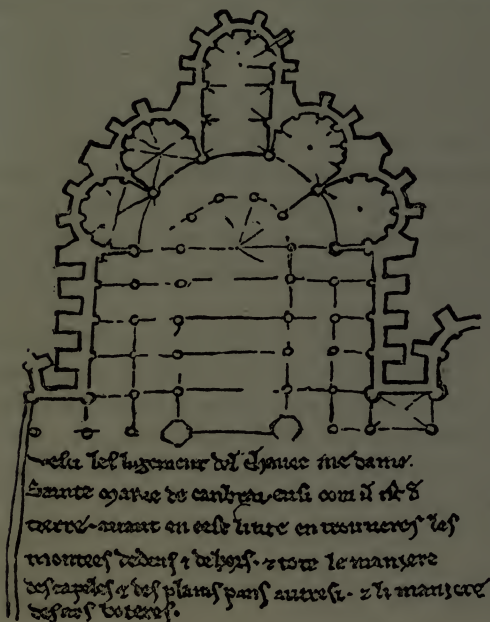 vesci les ligement del chavec me dame.
Sainte marie de canbrai ensi com il ist d
terre. avant en cest livre en trouveres les
montees dedens ⁊ dehors. ⁊ tote le maniere
des capeles ⁊ des plains pans autresi. ⁊ li maniere
des ars boteres.